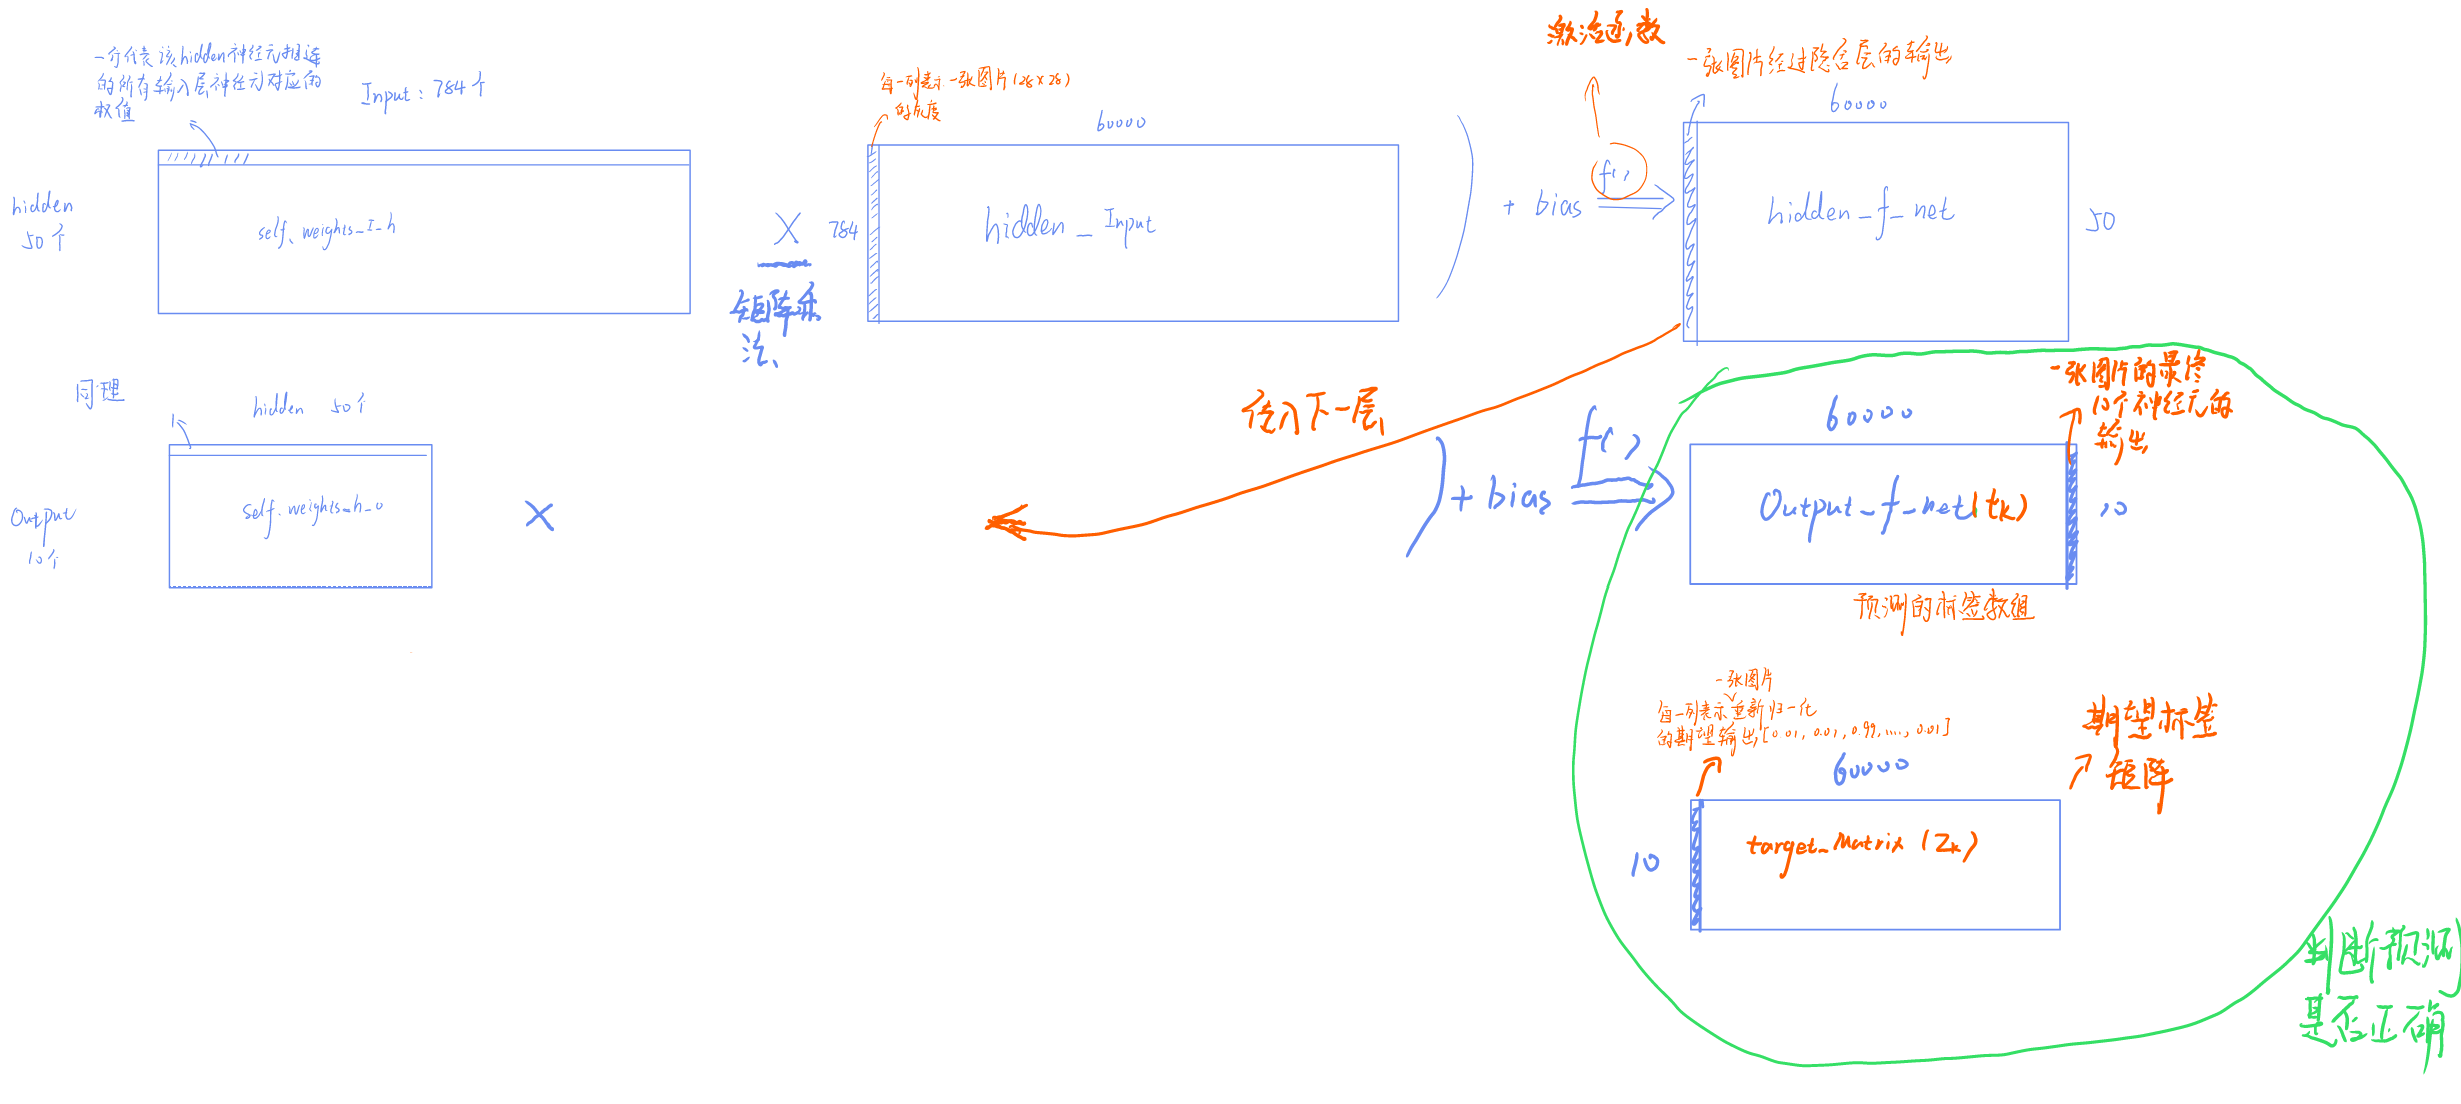 一行代表该hidden神经元相连
的所有输入层神经元对应的
权值
Input：784个
hidden
50个
self.weights_I_h
X
矩阵乘
法
每一列表示一张图片(28×28)
的灰度
60000
784
hidden_Input
+ bias
f( )
激活函数
一张图片经过隐含层的输出
60000
hidden_f_net
50
同理
hidden 50个
Output
10个
self.weights_h_o
X
传入下一层
+ bias
f( )
60000
一张图片的最终
10个神经元的
输出
Output_f_net(tk)
10
预测的标签数组
一张图片
每一列表示重新归一化
的期望输出[0.01, 0.01, 0.99, ...., 0.01]
60000
期望标签
矩阵
10
target_Matrix (Zk)
判断预测
是否正确